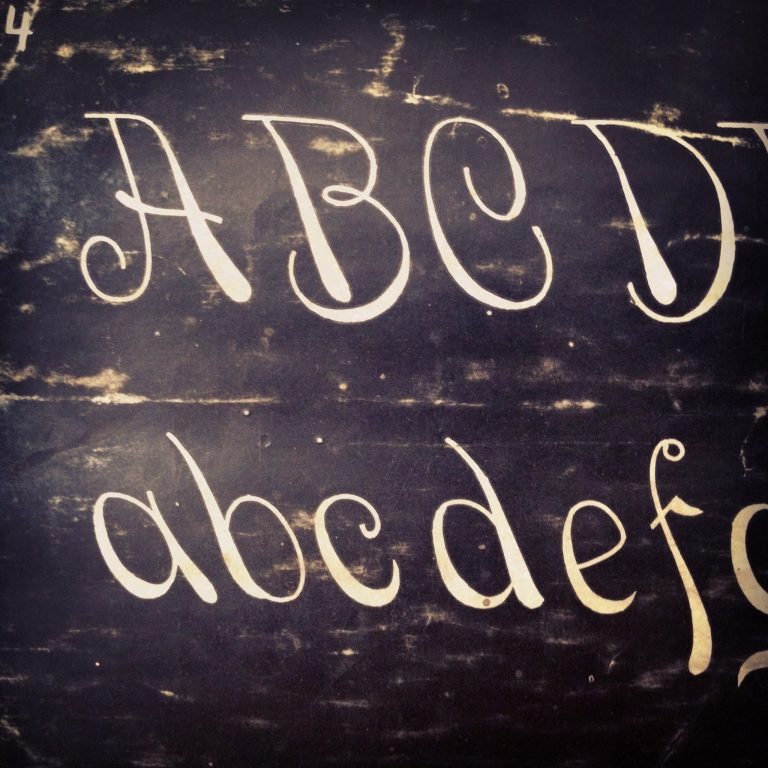 4
ABCD
abcdef